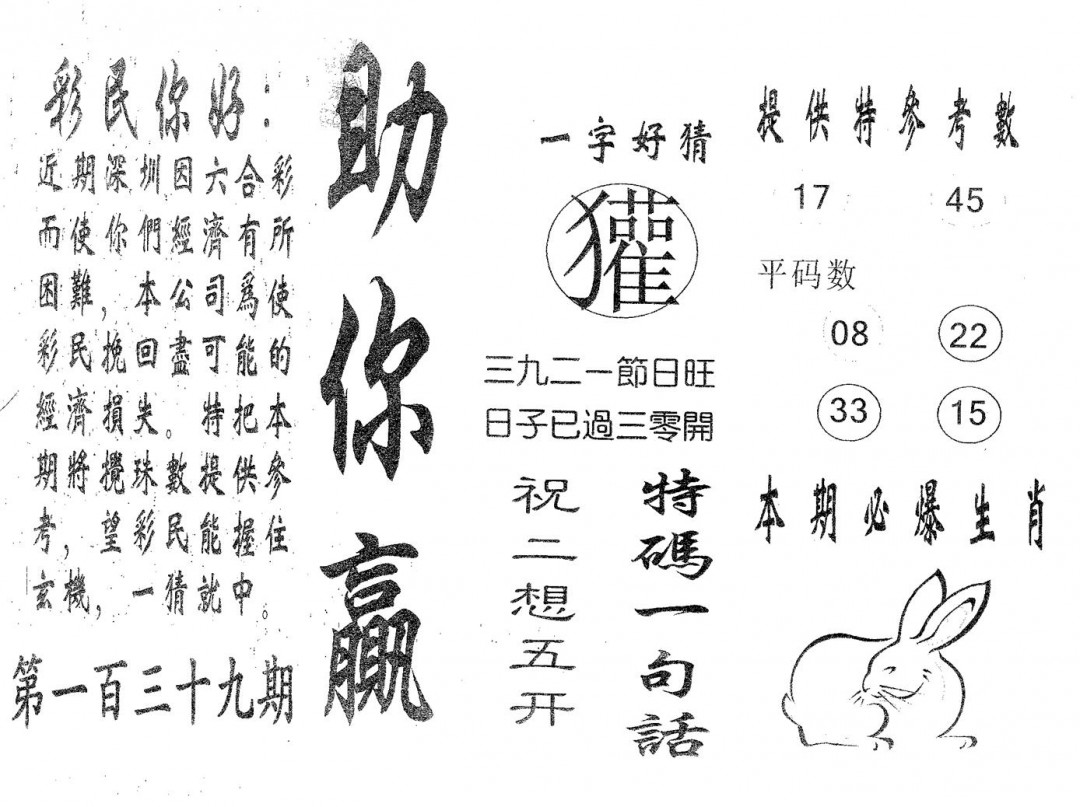 彩民你好：
近期深圳因六合彩
而使你們經濟有所
困難，本公司爲使
彩民挽回盡可能的
經濟損失。特把本
期將攪珠數提供參
考，望彩民能握住
玄機，一猜就中。
第一百三十九期
助你贏
一字好猜
獾
三九二一節日旺
日子已過三零開
特碼一句話
祝二想五开
提供特參考數
17 45
平码数
08 22
33 15
本期必爆生肖